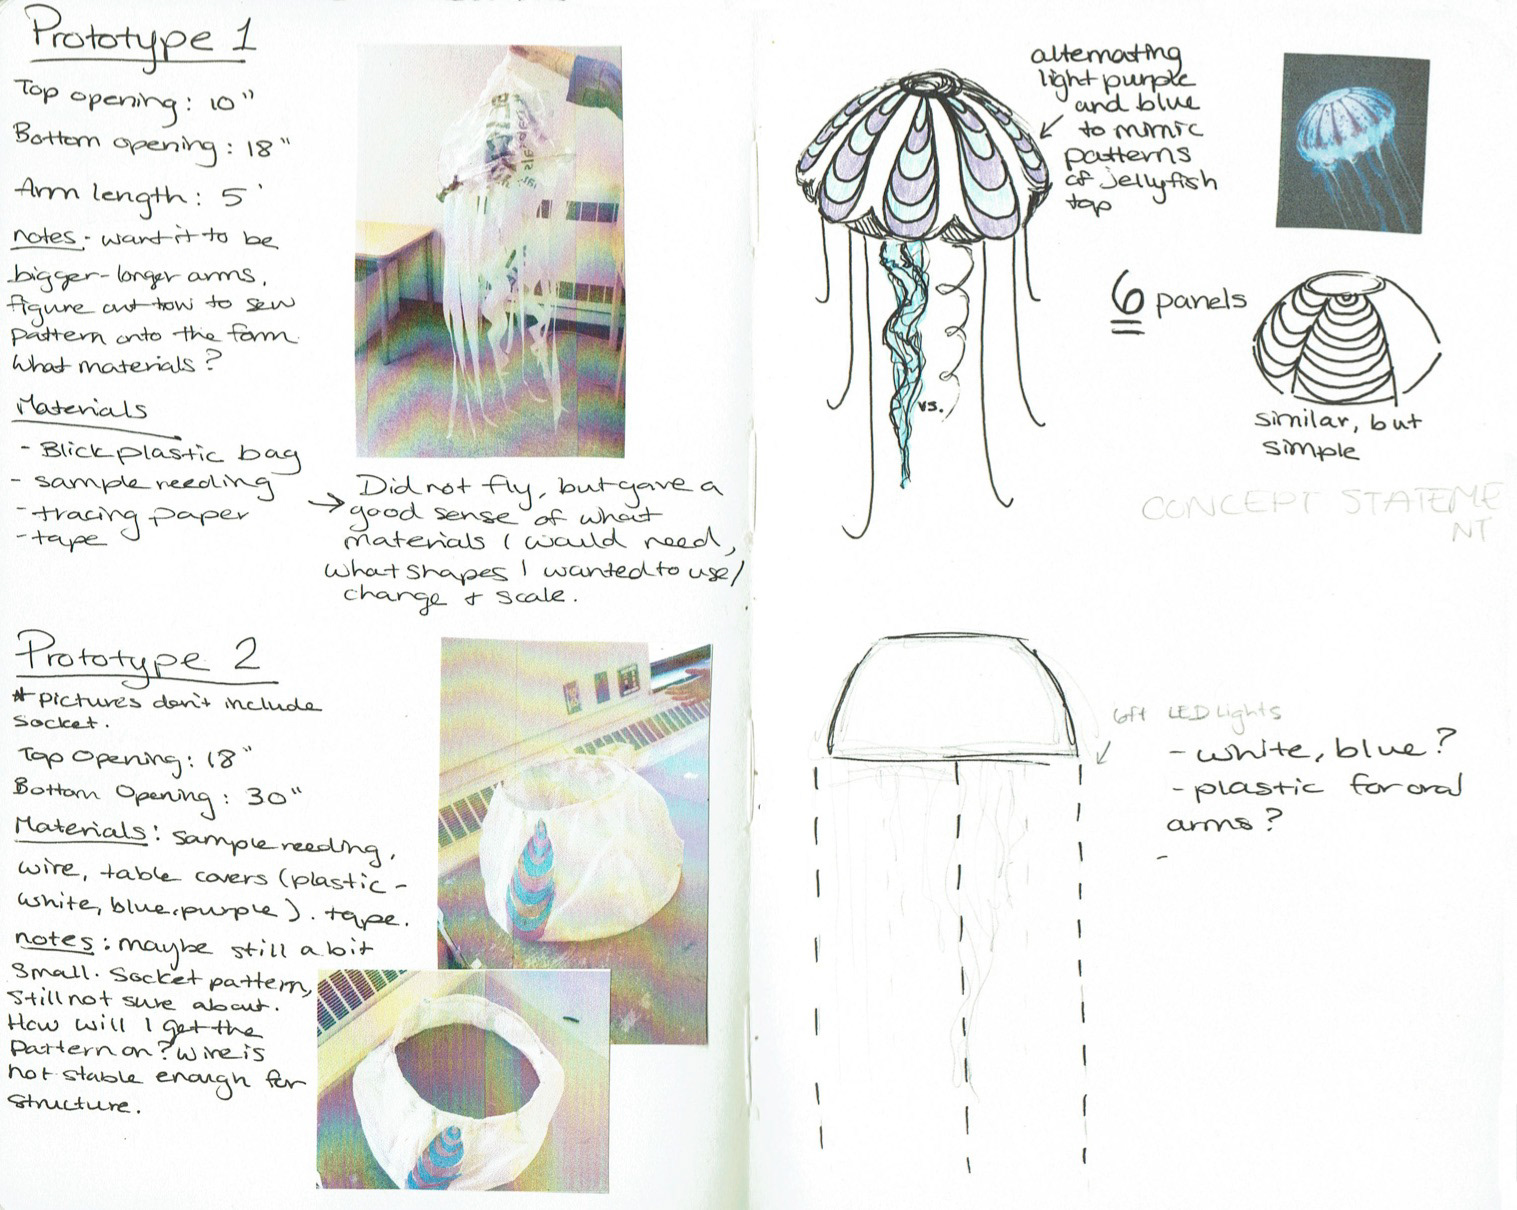 Prototype 1
Top opening: 10"
Bottom opening: 18"
Arm length: 5'
notes: want it to be
bigger - longer arms,
figure out how to sew
pattern onto the form.
What materials?
Materials
- Blick plastic bag
- sample reeding
- tracing paper
- tape
→ Did not fly, but gave a
good sense of what
materials I would need,
what shapes I wanted to use/
change + scale.
Prototype 2
* pictures don't include
socket.
Top Opening: 18"
Bottom Opening: 30"
Materials: sample reeding,
wire, table covers (plastic -
white, blue, purple). tape.
notes: maybe still a bit
small. Socket pattern,
still not sure about.
How will I get the
pattern on? Wire is
not stable enough for
structure.
alternating
light purple
and blue
to mimic
patterns
of jellyfish
top
vs.
6 panels
similar, but
simple
CONCEPT STATEME
NT
6ft LED lights
- white, blue?
- plastic for oral
arms?
-